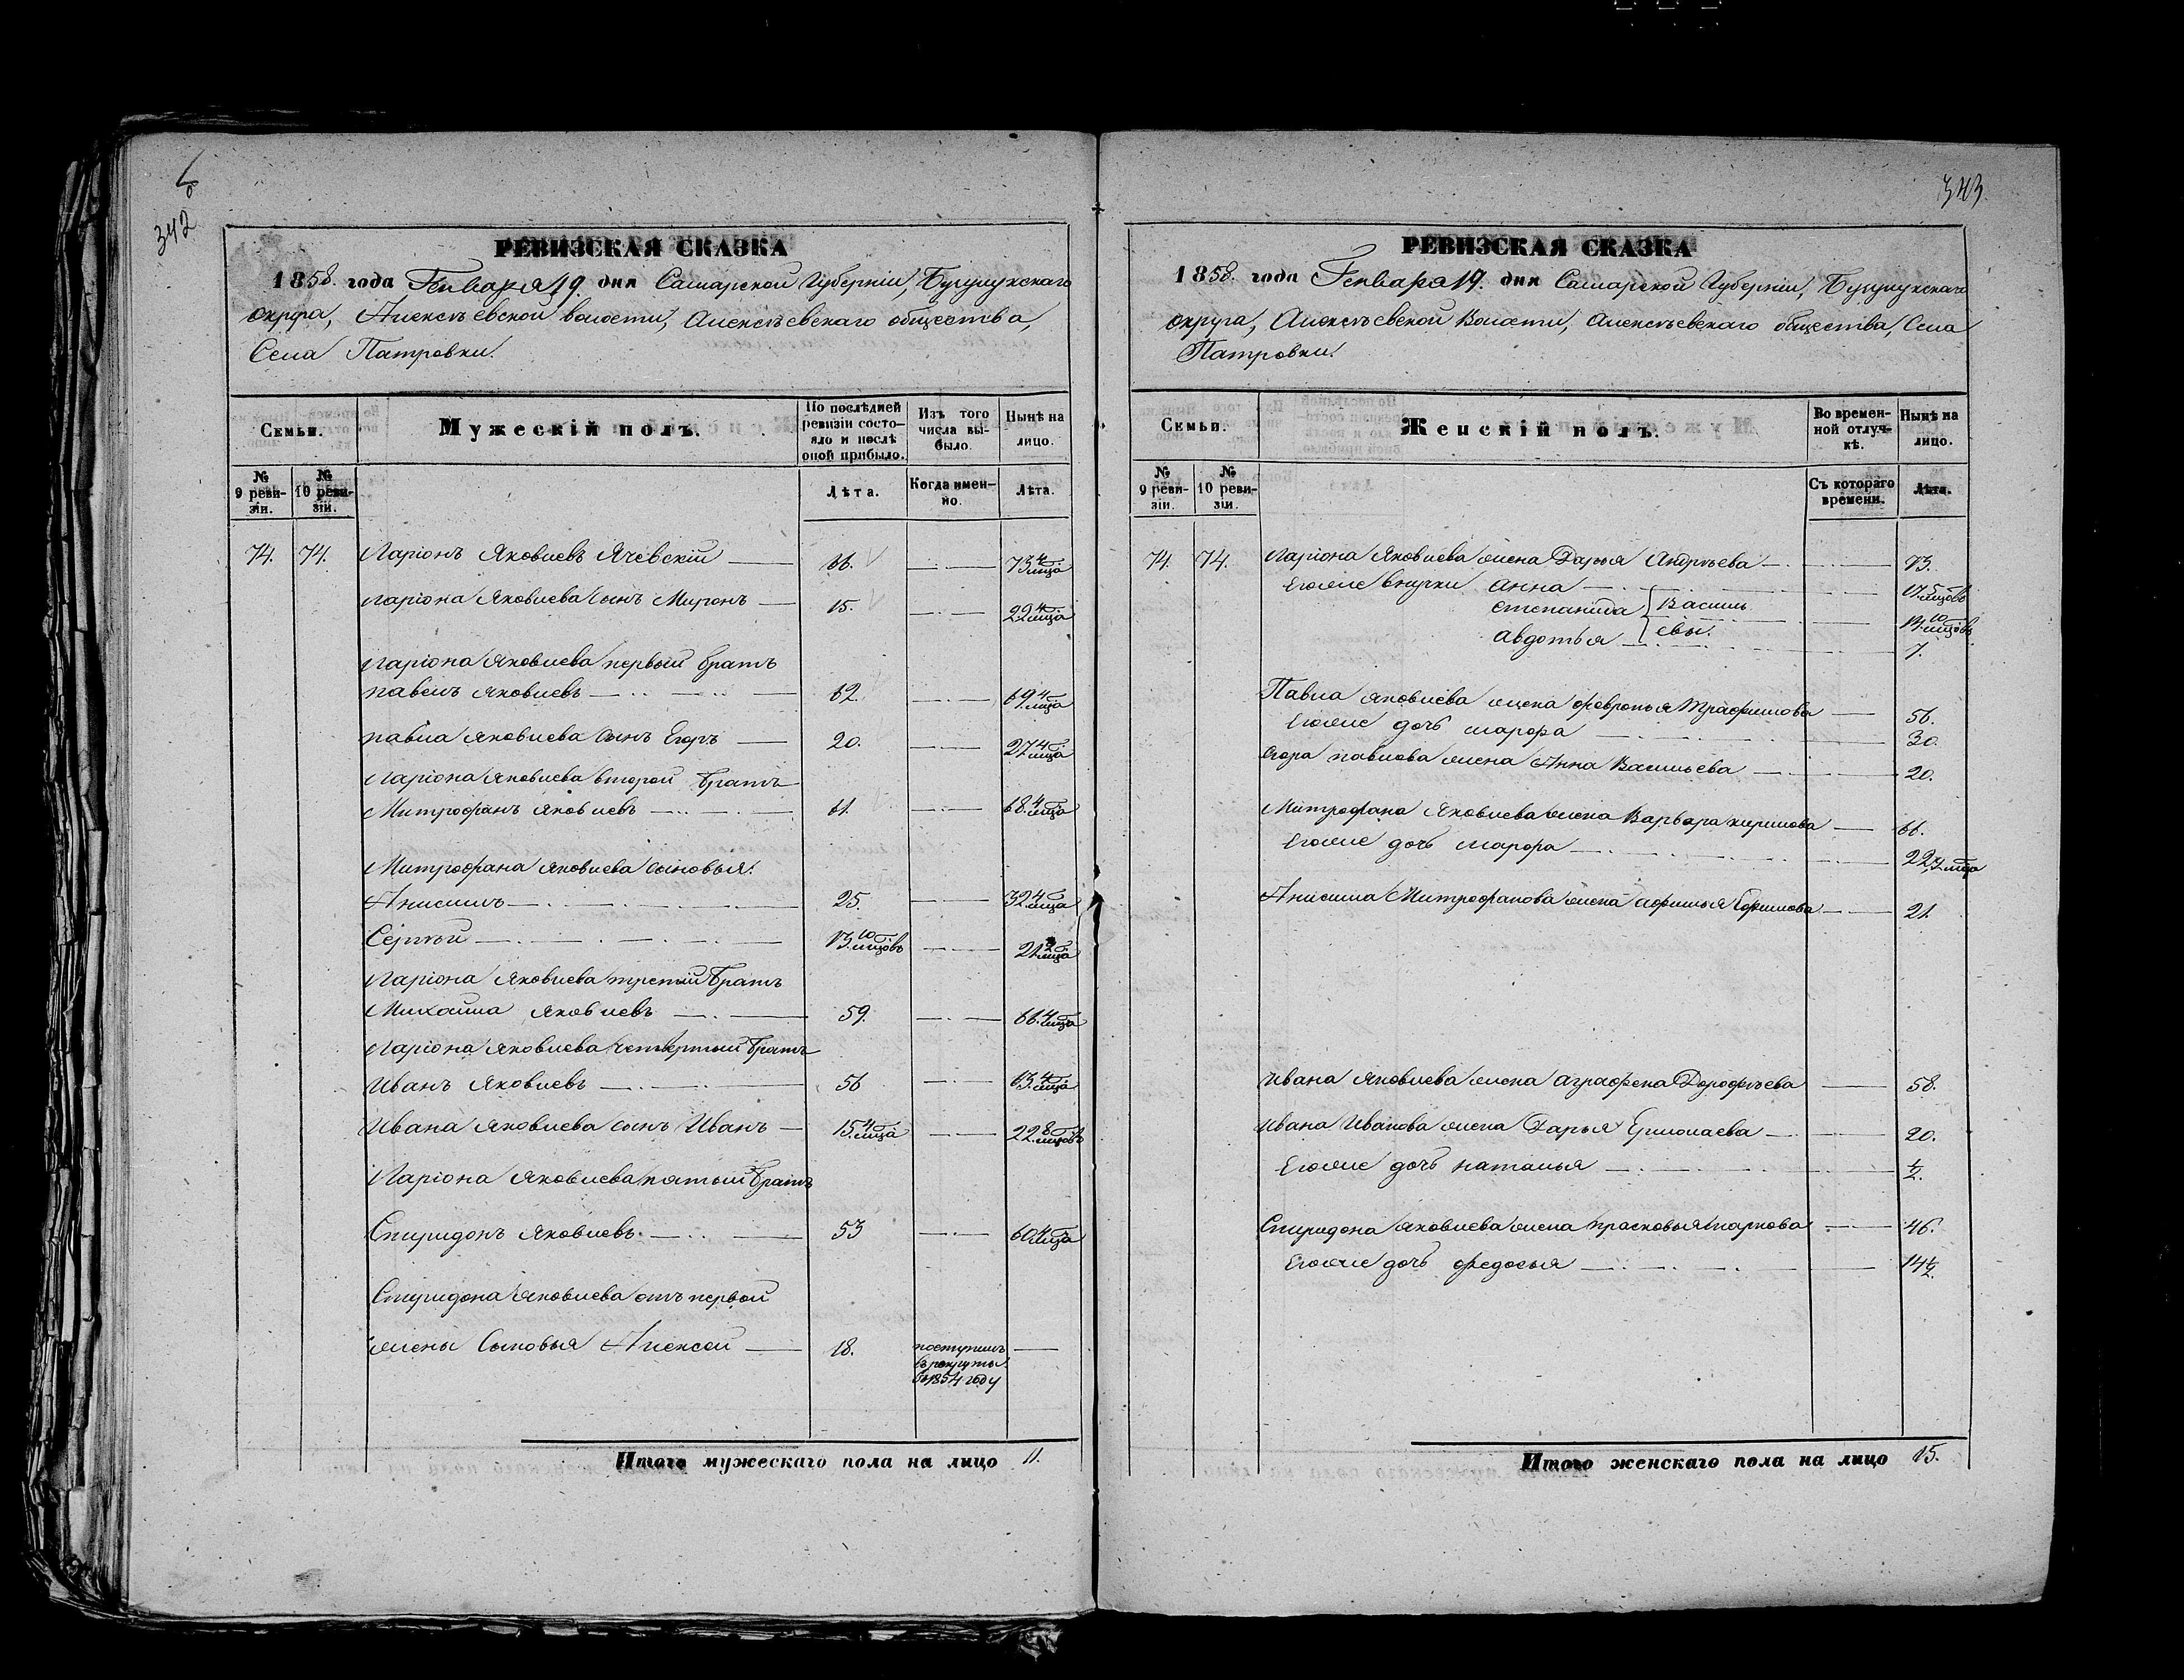 342
РЕВИЗСКАЯ СКАЗКА
1858. года Генваря 19. дня Самарской Губерніи, Бузулукскаго
округа, Алексѣевской волости, Алексѣевскаго общества,
Села Патровки.
Семьи.
Мужескій полъ.
По послѣдней ревизіи состояло и послѣ оной прибыло.
Изъ того числа выбыло.
Нынѣ на лицо.
№ 9 ревизіи.
№ 10 ревизіи.
Лѣта.
Когда именно.
Лѣта.
74. 74. Ларіонъ Яковлевъ Ячевскій 66. 73 4 мца
Ларіона Яковлева сынъ Миронъ 15. 22 4 мца
Ларіона Яковлева первый братъ
Павелъ Яковлевъ 62. 69 4 мца
Павла Яковлева сынъ Егоръ 20. 27 4 мца
Ларіона Яковлева второй братъ
Митрофанъ Яковлевъ 61. 68. 4 мца
Митрофана Яковлева сыновья:
Анисимъ 25. 32 4 мца
Сергѣй 13. 10 мцовъ 21 2 мца
Ларіона Яковлева третій братъ
Михайла Яковлевъ 59. 66. 4 мца
Ларіона Яковлева четвертый братъ
Иванъ Яковлевъ 56 63. 4 мца
Ивана Яковлева сынъ Иванъ 15. 4 мца 22. 8 мцовъ
Ларіона Яковлева пятый братъ
Спиридонъ Яковлевъ 53 60. 4 мца
Спиридона Яковлева отъ первой
жены сыновья Алексей 18. поступилъ
в рекруты
въ 1854 году
Итого мужескаго пола на лицо 11.
343.
РЕВИЗСКАЯ СКАЗКА
1858. года Генваря 19. дня Самарской Губерніи, Бузулукскаго
округа, Алексѣевской Волости, Алексѣевскаго общества, Села
Патровки.
Семьи.
Женскій полъ.
Во временной отлучкѣ.
Нынѣ на лицо.
№ 9 ревизіи.
№ 10 ревизіи.
Съ котораго времени.
Лѣта.
74. 74. Ларіона Яковлева жена Дарья Андрѣева 73.
Егоже внучки Анна 17. 5 мцовъ
Степанида } Василь 13. 10 мцовъ
Авдотья } евы. 7.
Павла Яковлева жена Февронья Трафимова 56.
Егоже дочь Марфа 30.
Егора Павлова жена Анна Васильева 20.
Митрофана Яковлева жена Варвара Кирилова 66.
Егоже дочь Марфа 22. мца
Анисима Митрофанова жена Афимья 21.
Ивана Яковлева жена Аграфена Дорофѣева 58.
Ивана Иванова жена Дарья Ермолаева 20.
Егоже дочь Наталья ½.
Спиридона Яковлева жена Прасковья Маркова 46.
Егоже дочь Федосья 14½.
Итого женскаго пола на лицо 15.